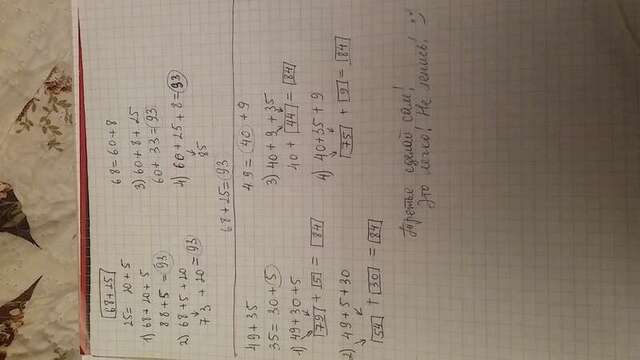 68+25
25= 20+5
1) 68+20+5
88+5=93
2) 68+5+20
73+20=93
68=60+8
3) 60+8+25
60+33=93
4) 60+25+8=93
85
68+25=93
49+35
35=30+5
1) 49+30+5
79+5=84
2) 49+5+30
54+30=84
49=40+9
3) 40+9+35
40+44=84
4) 40+35+9
75+9=84
Третье сделай сам!
Это легко! Не ленись! :)